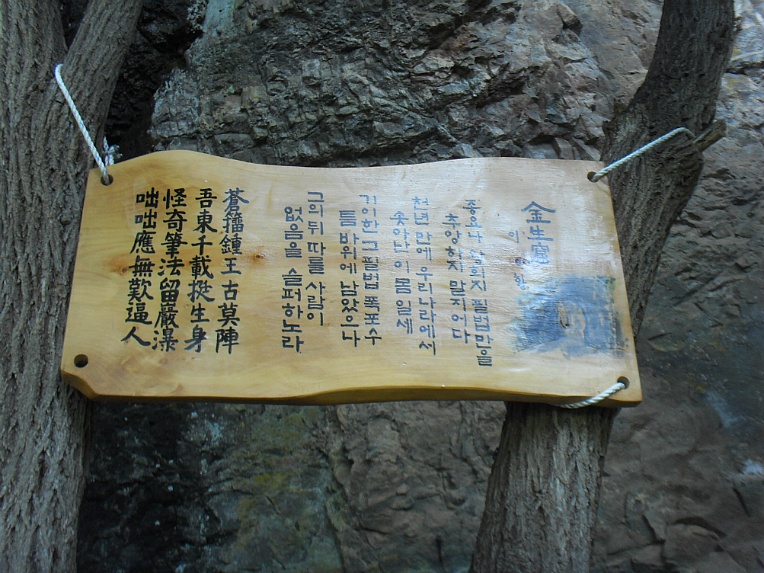 金生窟
이
종요나 왕희지 필법만을
추앙하지 말지어다
천년만에 우리나라에서
솟아난 이 몸일세
기이한 그 필법 폭포수
틈 바위에 남았으나
그의 뒤 따를 사람이
없음을 슬퍼하노라
蒼籒鍾王古莫陣
吾東千載挺生身
怪奇筆法留巖瀑
咄咄應無歎逼人